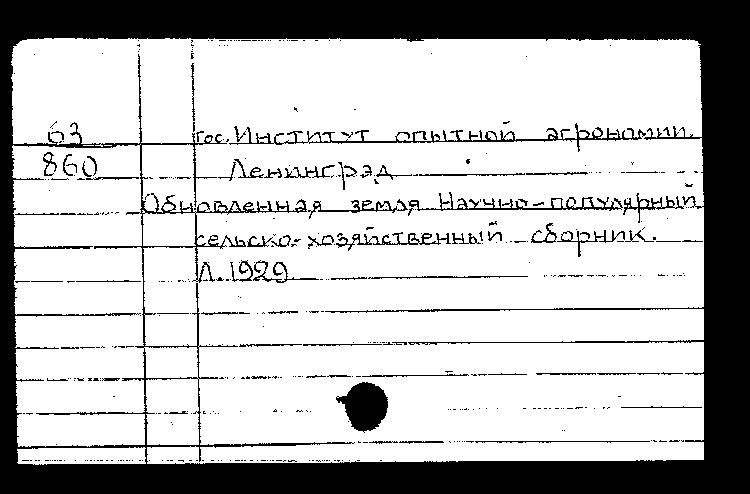 63
860
гос. Институт опытной агрономии.
Ленинград
Обновленная земля Научно-популярный
сельско-хозяйственный сборник.
Л. 1929